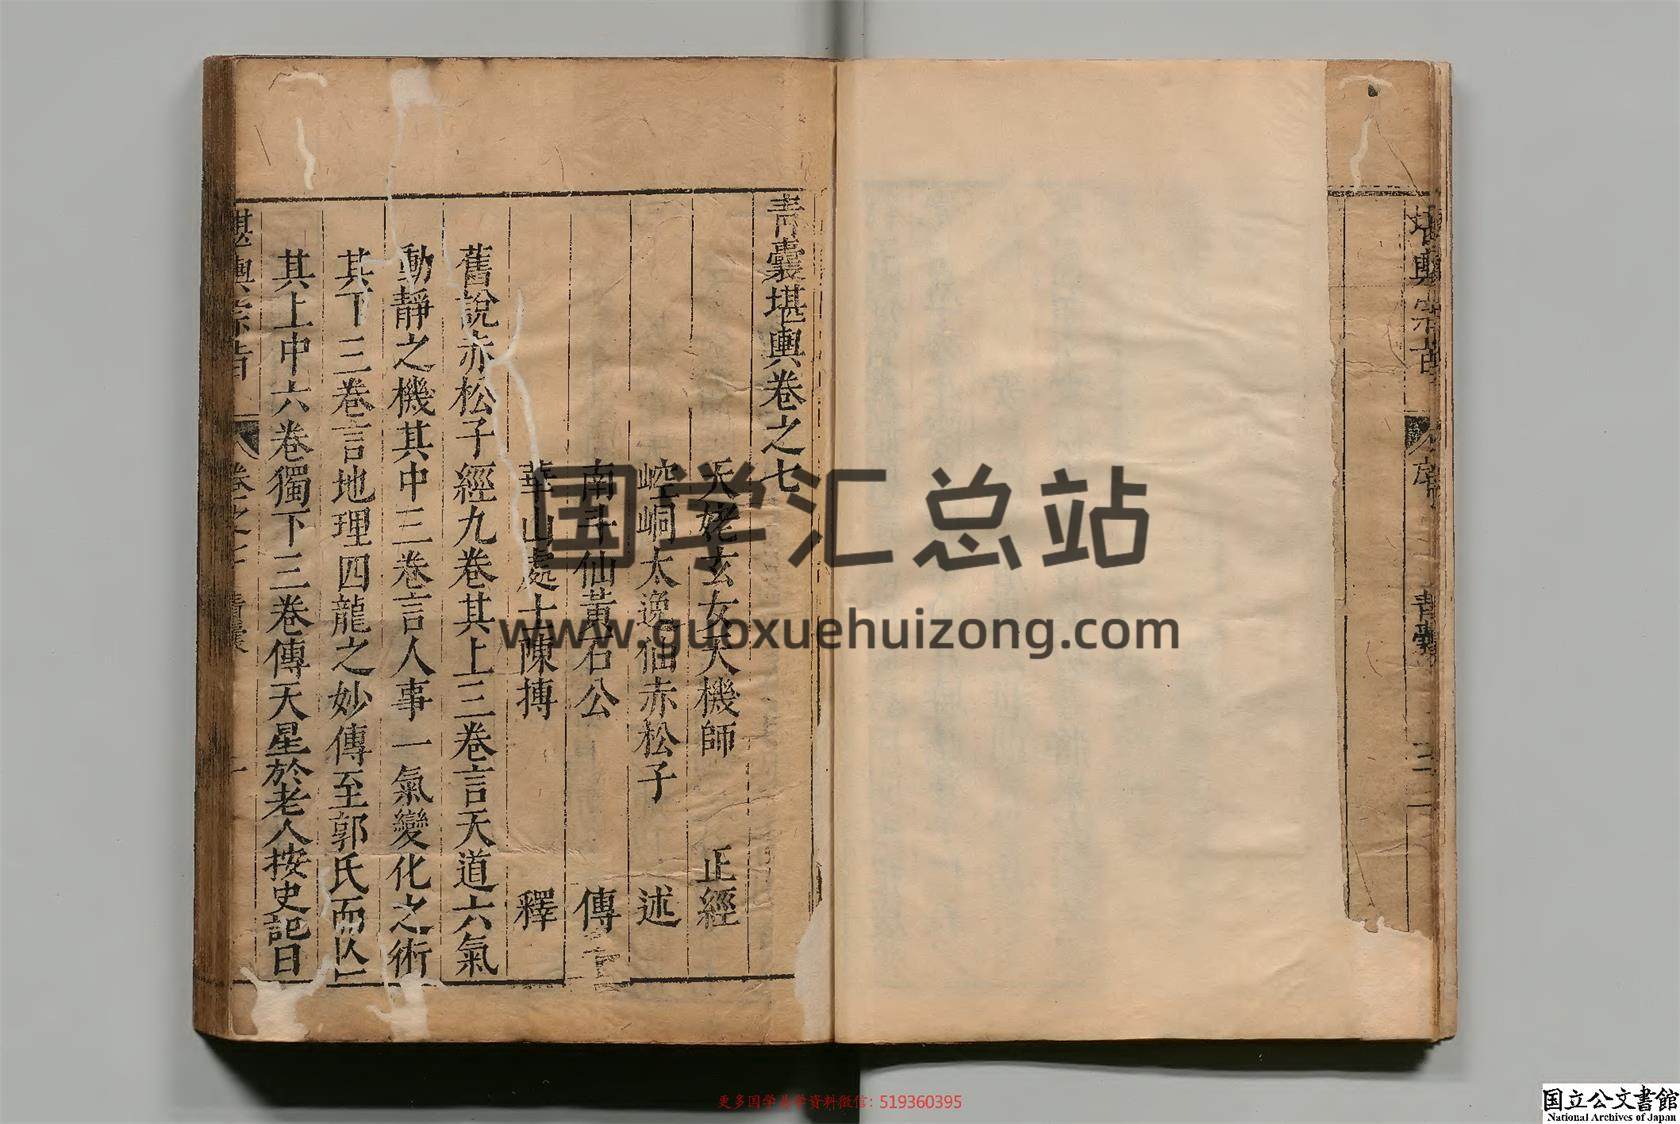 堪輿宗旨
序
青囊
二
青囊堪輿卷之七
天姥玄女天機師 正經
崆峒太逸仙赤松子 述
南斗仙黃石公 傳
華山處士陳摶 釋
舊說赤松子經九卷其上三卷言天道六氣
動靜之機其中三卷言人事一氣變化之術
其下三卷言地理四龍之妙傳至郭氏而
其上中六卷獨下三卷傳天星於老人按史記曰
堪輿宗旨
卷之七
青囊
一
国学汇总站
www.guoxuehuizong.com
更多国学易学资料微信：519360395
国立公文書館
National Archives of Japan